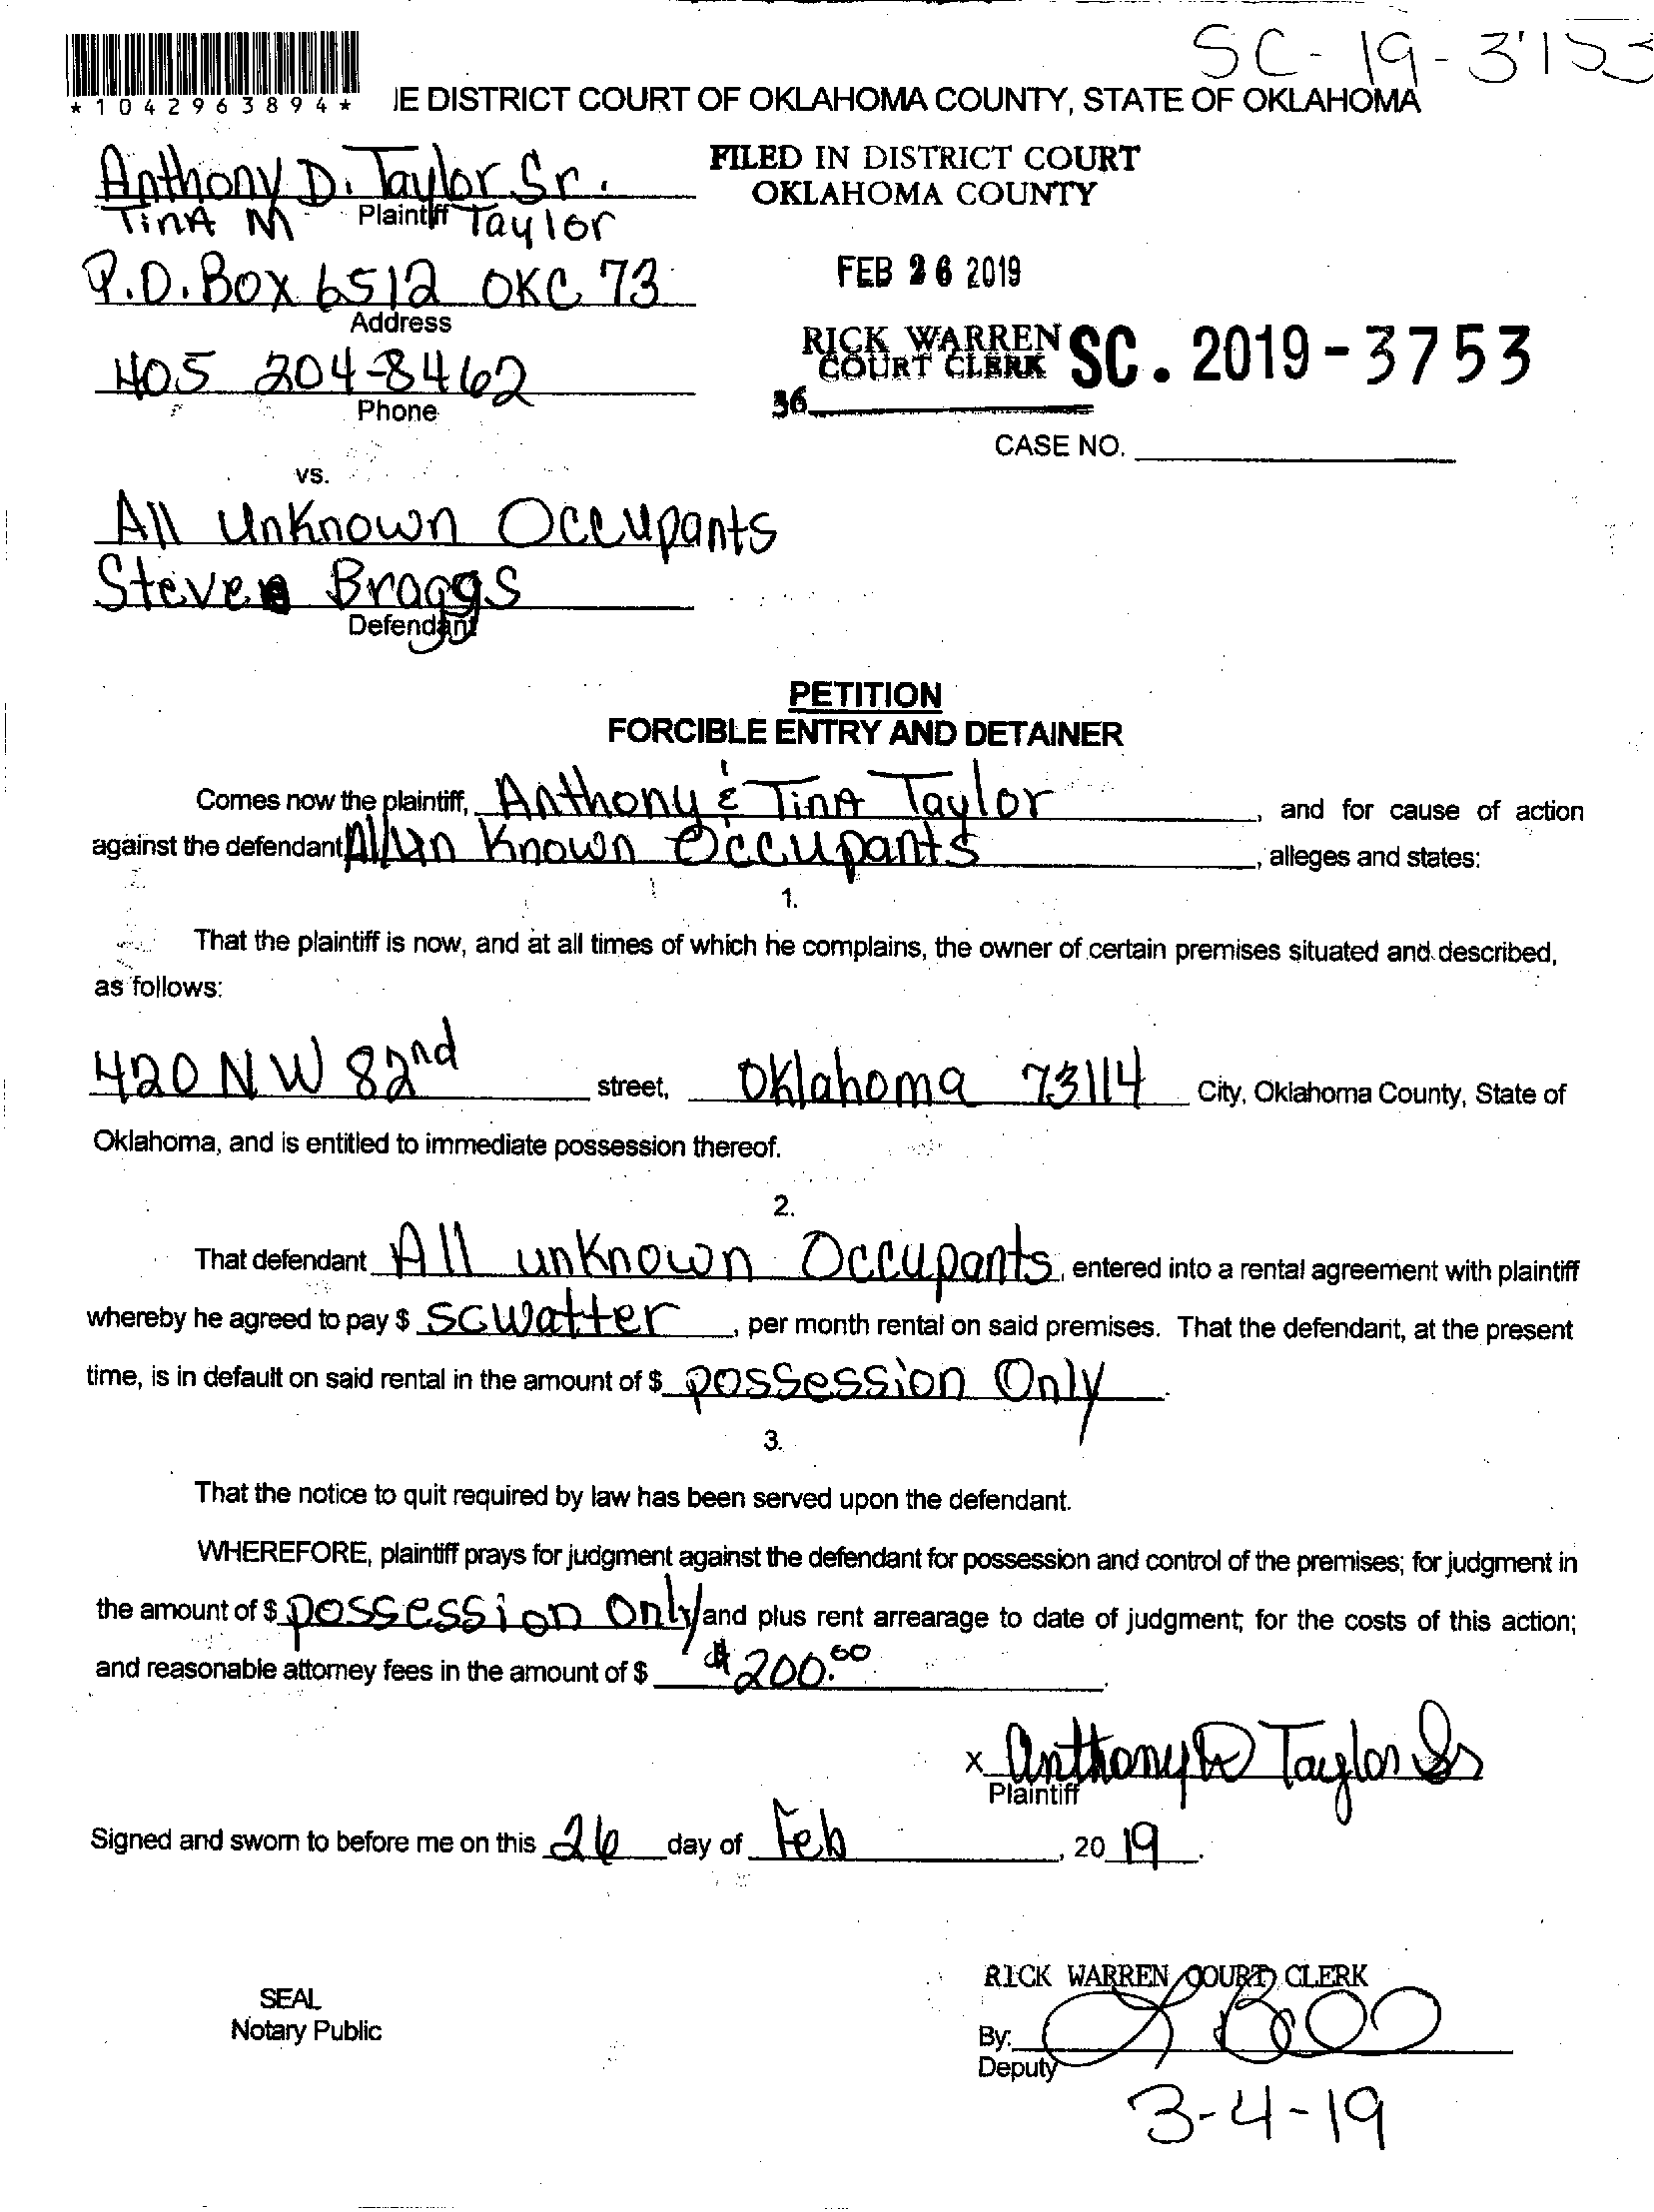 SC-19-3753
*1042963894*
IE DISTRICT COURT OF OKLAHOMA COUNTY, STATE OF OKLAHOMA
Anthony D. Taylor Sr.
Plaintiff
TinA M Taylor
P.O. Box 6512 OKC 73
Address
405 204-8462
Phone
FILED IN DISTRICT COURT
OKLAHOMA COUNTY
FEB 26 2019
RICK WARREN
COURT CLERK
36
SC. 2019-3753
CASE NO.
vs.
All Unknown Occupants
Steven Braggs
Defendant
PETITION
FORCIBLE ENTRY AND DETAINER
Comes now the plaintiff, Anthony & TinA Taylor, and for cause of action
against the defendant All un Known Occupants, alleges and states:
1.
That the plaintiff is now, and at all times of which he complains, the owner of certain premises situated and described,
as follows:
420 NW 82nd street, Oklahoma 73114 City, Oklahoma County, State of
Oklahoma, and is entitled to immediate possession thereof.
2.
That defendant All unknown Occupants, entered into a rental agreement with plaintiff
whereby he agreed to pay $ scwatter, per month rental on said premises. That the defendant, at the present
time, is in default on said rental in the amount of $ possession Only.
3.
That the notice to quit required by law has been served upon the defendant.
WHEREFORE, plaintiff prays for judgment against the defendant for possession and control of the premises; for judgment in
the amount of $ possession Only and plus rent arrearage to date of judgment; for the costs of this action;
and reasonable attorney fees in the amount of $ $200.00.
x Anthony D Taylor Sr
Plaintiff
Signed and sworn to before me on this 26 day of Feb, 2019.
SEAL
Notary Public
RICK WARREN COURT CLERK
By:
Deputy
3-4-19